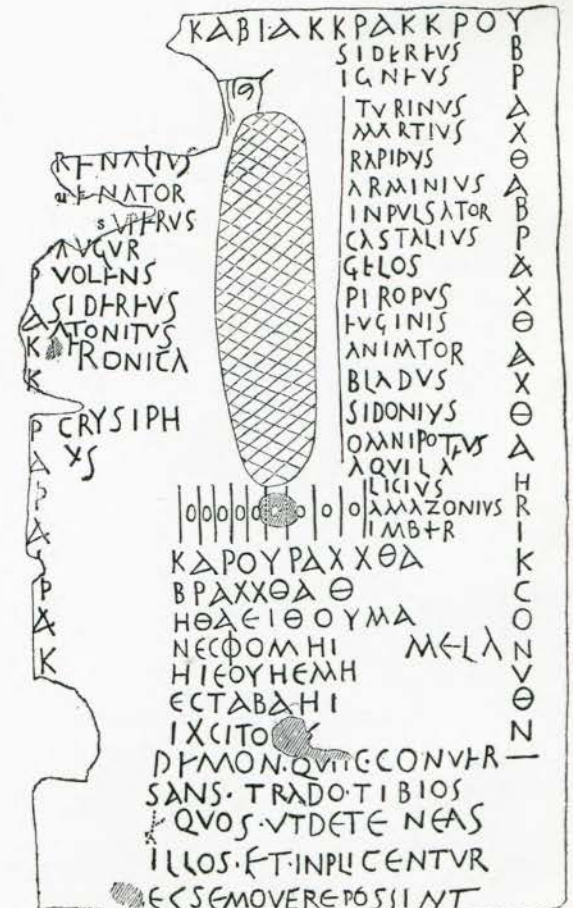 ΚΑΒΙ·ΑΚΚΡΑΚΚΡΟΥ
ΒΡΑΧΘΑΒΡΑΧΘΑΧΘΑΗΡΙΚϹΟΝΥΘΝ
SIDEREVS
IGNEVS
TVRINVS
MARTIVS
RAPIDVS
ARMINIVS
INPVLSATOR
CASTALIVS
GELOS
PIROPVS
EVGINIS
ANIMATOR
BLADVS
SIDONIVS
OMNIPOTEVS
AQVILA
LICIVS
AMAZONIVS
IMBER
RENATIVS
uENATOR
sVPERVS
AVGVR
VOLENS
SIDEREVS
ATONITVS
RONICA
CRYSIPH
VS
ΚΑΡΟΥΡΑΧΧΘΑ
ΒΡΑΧΧΘΑ Θ
ΗΘΑΕΙΘΟΥΜΑ
ΝΕϹΦΟΜΗΙ MELA
ΗΙΕΟΥΗΕΜΗ
ΕϹΤΑΒΑΗΙ
IXCITO
DEMON·QVI IC CONVER
SANS·TRADO·TIBI OS
EQVOS·VT DETENEAS
ILLOS·ET·INPLICENTVR
EC SE MOVERE POSSINT